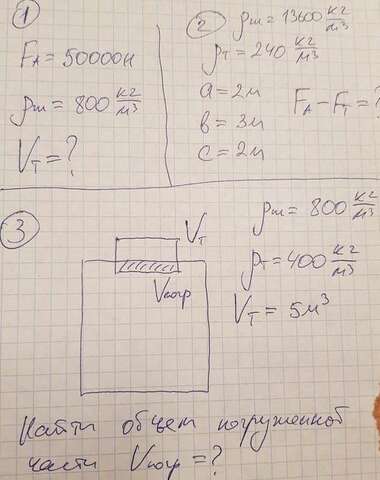 1
F_A = 50000н
ρж = 800 кг/м³
V_T = ?
2
ρж = 13600 кг/м³
ρT = 240 кг/м³
a = 2м
в = 3м
c = 2м
F_A − F_T = ?
3
V_T
Vпогр
ρж = 800 кг/м³
ρT = 400 кг/м³
V_T = 5м³
Найти объем погруженной
части Vпогр = ?